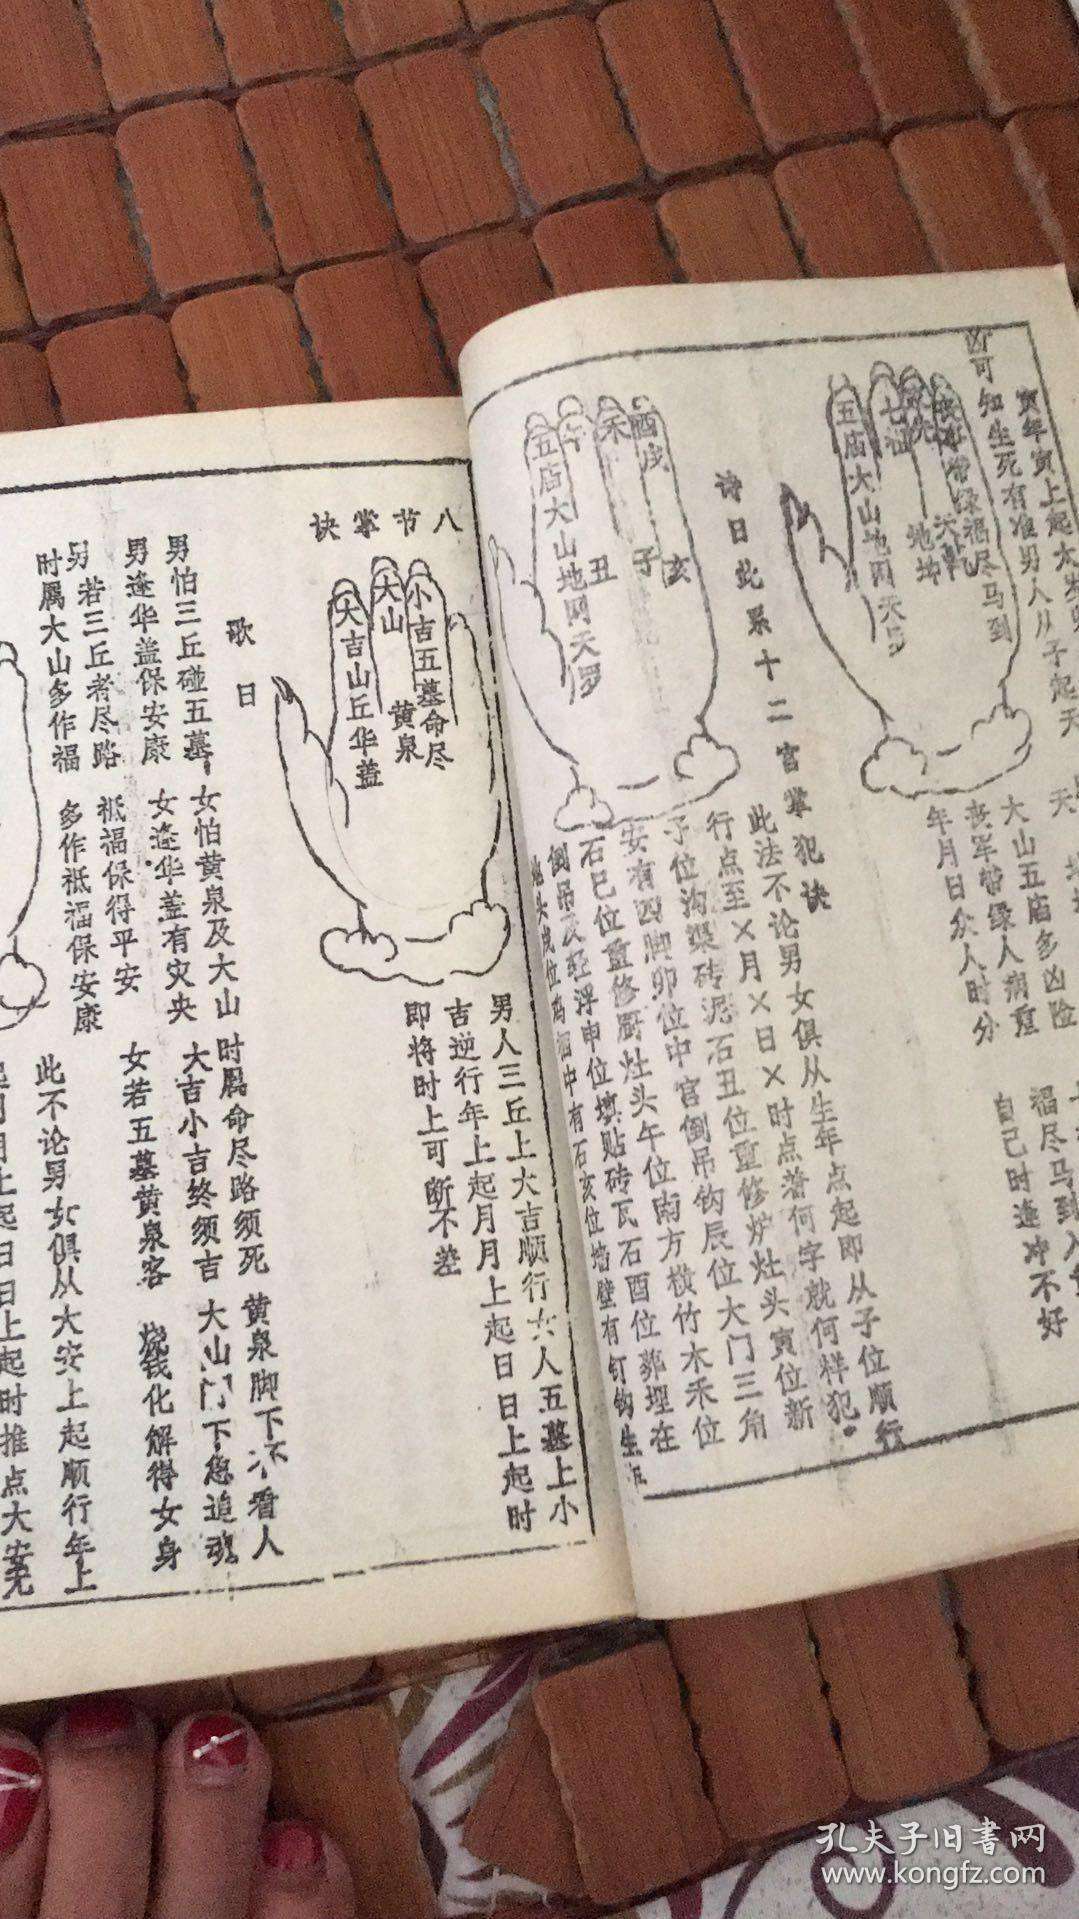 寅年寅上起太岁
凶可知生死有准男人从子起天
禄福尽马到
五庙大山地网天罗
大山五庙多凶险
丧军带缘人病重
年月日众人时分
福尽马到入
自己时逢冲不好
诗曰此系十二宫掌犯诀
此法不论男女俱从生年点起即从子位顺行
行点至×月×日×时点着何字就何样犯。
子位沟渠砖泥石丑位重修炉灶头寅位新
安有四脚卯位中宫倒吊钩辰位大门三角
石巳位重修厨灶头午位南方横竹木禾位
倒吊及轻浮申位填贴砖瓦石酉位葬埋在
中有石亥位墙壁有钉钩生
酉戌
禾
午
五庙大山地网天罗
亥
子
丑
八节掌诀
小吉五墓命尽
黄泉
大山
大吉山丘华盖
男人三丘上大吉顺行女人五墓上小
吉逆行年上起月月上起日日上起时
即将时上可断不差
歌曰
男怕三丘碰五墓 女怕黄泉及大山 时属命尽路须死 黄泉脚下不看人
男逢华盖保安康 女逢华盖有灾央 大吉小吉终须吉 大山门下急追魂
男若三丘者尽路 祗福保得平安 女若五墓黄泉客 烧钱化解得女身
时属大山多作福 多作祗福保安康
此不论男女俱从大安上起顺行年上
起月月上起日日上起时推点大安无
孔夫子旧书网
www.kongfz.com